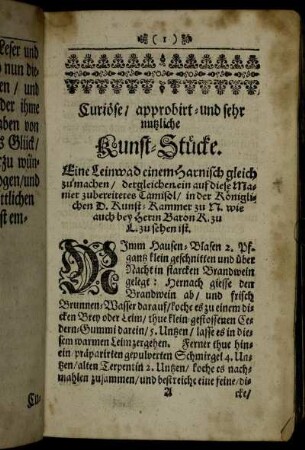 Leser und
nun die-
en / und
der ihme
aben von
s Glück /
rzu wün-
ogen / und
ttlichen
st em-
Cu-
( 1 )
Curiöse / approbirt- und sehr
nutzliche
Kunst-Stücke.
Eine Leinwad einem Harnisch gleich
zu machen / dergleichen ein auf diese Ma-
nier zubereitetes Camisol / in der Königli-
chen D. Kunst-Kammer zu N. wie
auch bey Herrn Baron R. zu
L. zu sehen ist.
NImm Hausen-Blasen 2. Pf.
gantz klein geschnitten und über
Nacht in starcken Brandwein
gelegt: Hernach giesse den
Brandwein ab / und frisch
Brunnen-Wasser darauf / koche es zu einem di-
cken Brey oder Leim / thue klein gestossenen Ce-
dern-Gummi darein / 5. Untzen / lasse es in die-
sem warmen Leim zergehen. Ferner thue hin-
ein / präparirten gepulverten Schmirgel 4. Un-
tzen / alten Terpentin 2. Untzen / koche es nach-
mahlen zusammen / und bestreiche eine feine / di-
A cke /